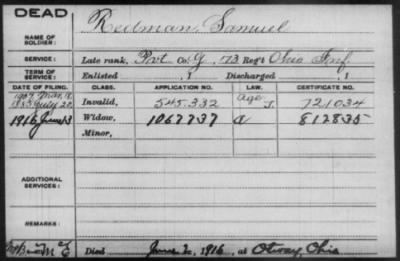 DEAD
NAME OF SOLDIER: Redman, Samuel
SERVICE: Late rank, Pvt Co. G, 73 Reg't Ohio Inf.
TERM OF SERVICE: Enlisted , 1 Discharged , 1
DATE OF FILING. CLASS. APPLICATION NO. LAW. CERTIFICATE NO.
1907 Mar. 18 Age
1885 July 20 Invalid, 545.332 J. 721034
1916 June 13 Widow, 1067737 a 812835
Minor,
ADDITIONAL SERVICES:
REMARKS:
Died June 2, 1916, at Otway, Ohio